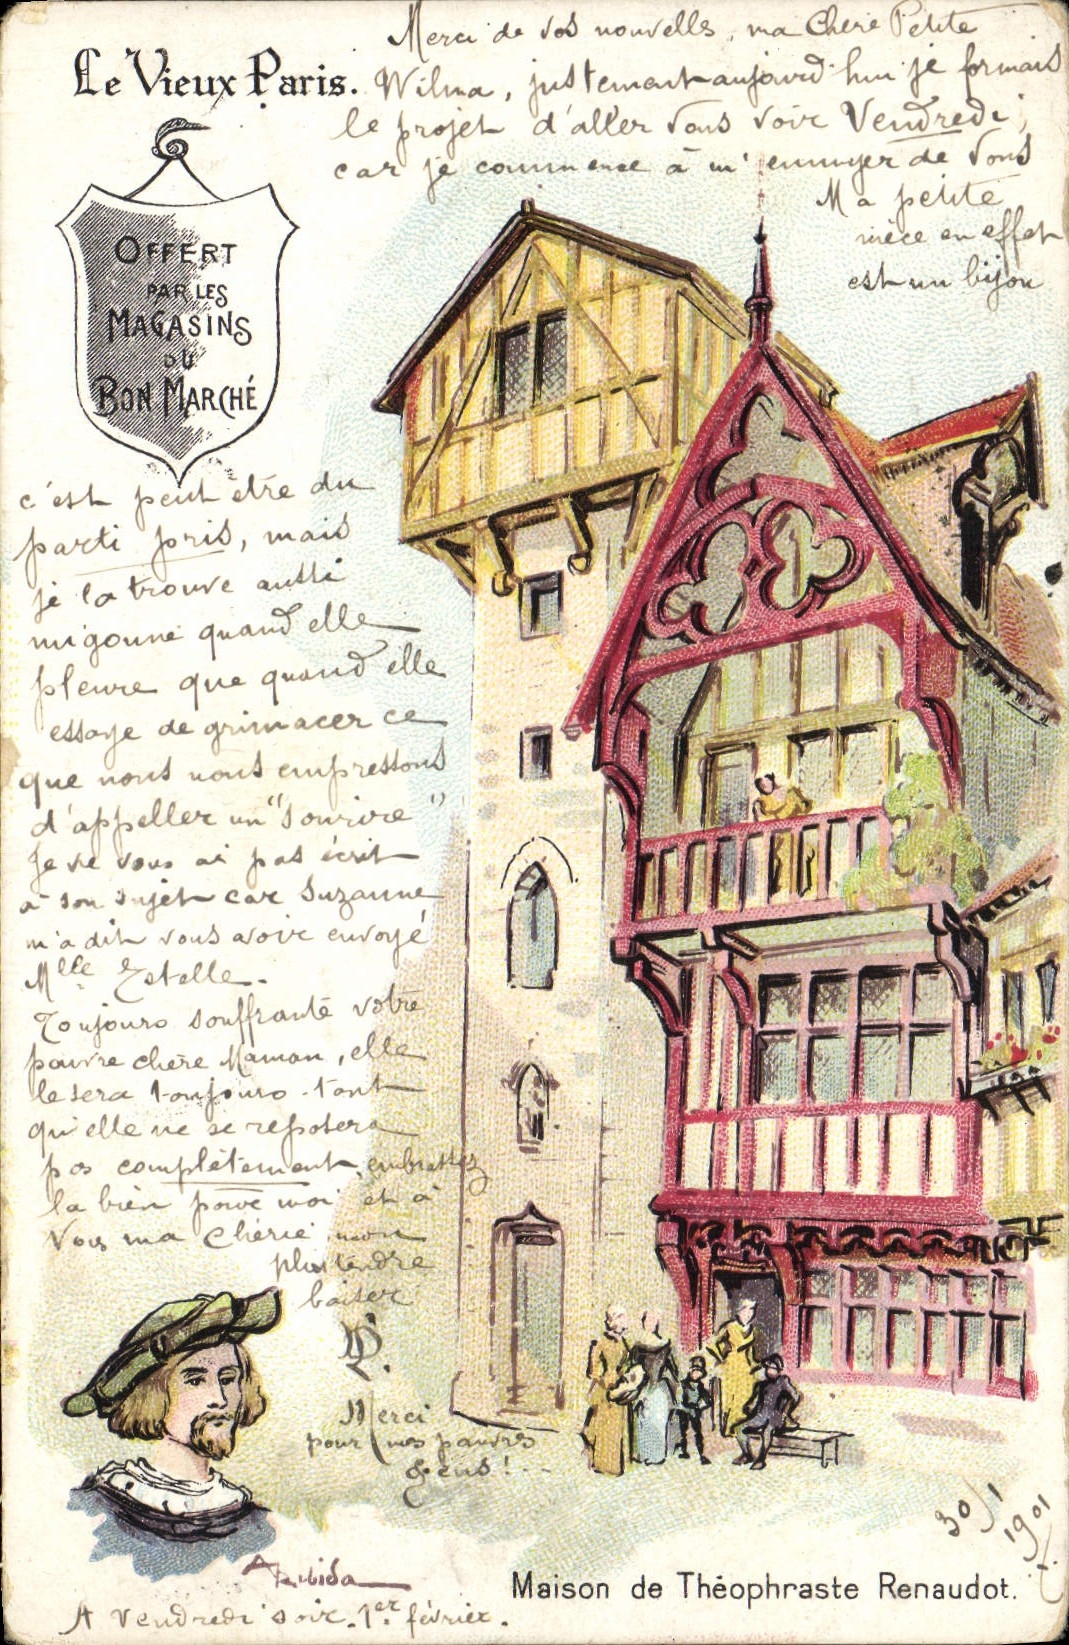 Le Vieux Paris.
OFFERT
PAR LES
MAGASINS
DU
BON MARCHÉ
Merci de vos nouvelles, ma Chère Petite
Wilma, justement aujourd'hui je formais
le projet d'aller vous voir Vendredi,
car je commence à m'ennuyer de vous
Ma petite
nièce en effet
est un bijou
c'est peut être du
parti pris, mais
je la trouve aussi
mignonne quand elle
pleure que quand elle
essaye de grimacer ce
que nous nous empressons
d'appeller un "sourire"
Je ne vous ai pas écrit
à son sujet car Suzanne
m'a dit vous avoir envoyé
Mlle Estelle.
Toujours souffrante votre
pauvre chère Maman, elle
le sera toujours tant
qu'elle ne se reposera
pas complètement, embrassez
la bien pour moi et à
Vous ma Chérie mon
plus tendre
baiser
Merci
pour mes pauvres
gens!...
30/1
1901
A Robida
Maison de Théophraste Renaudot.
A Vendredi soir. 1er février.